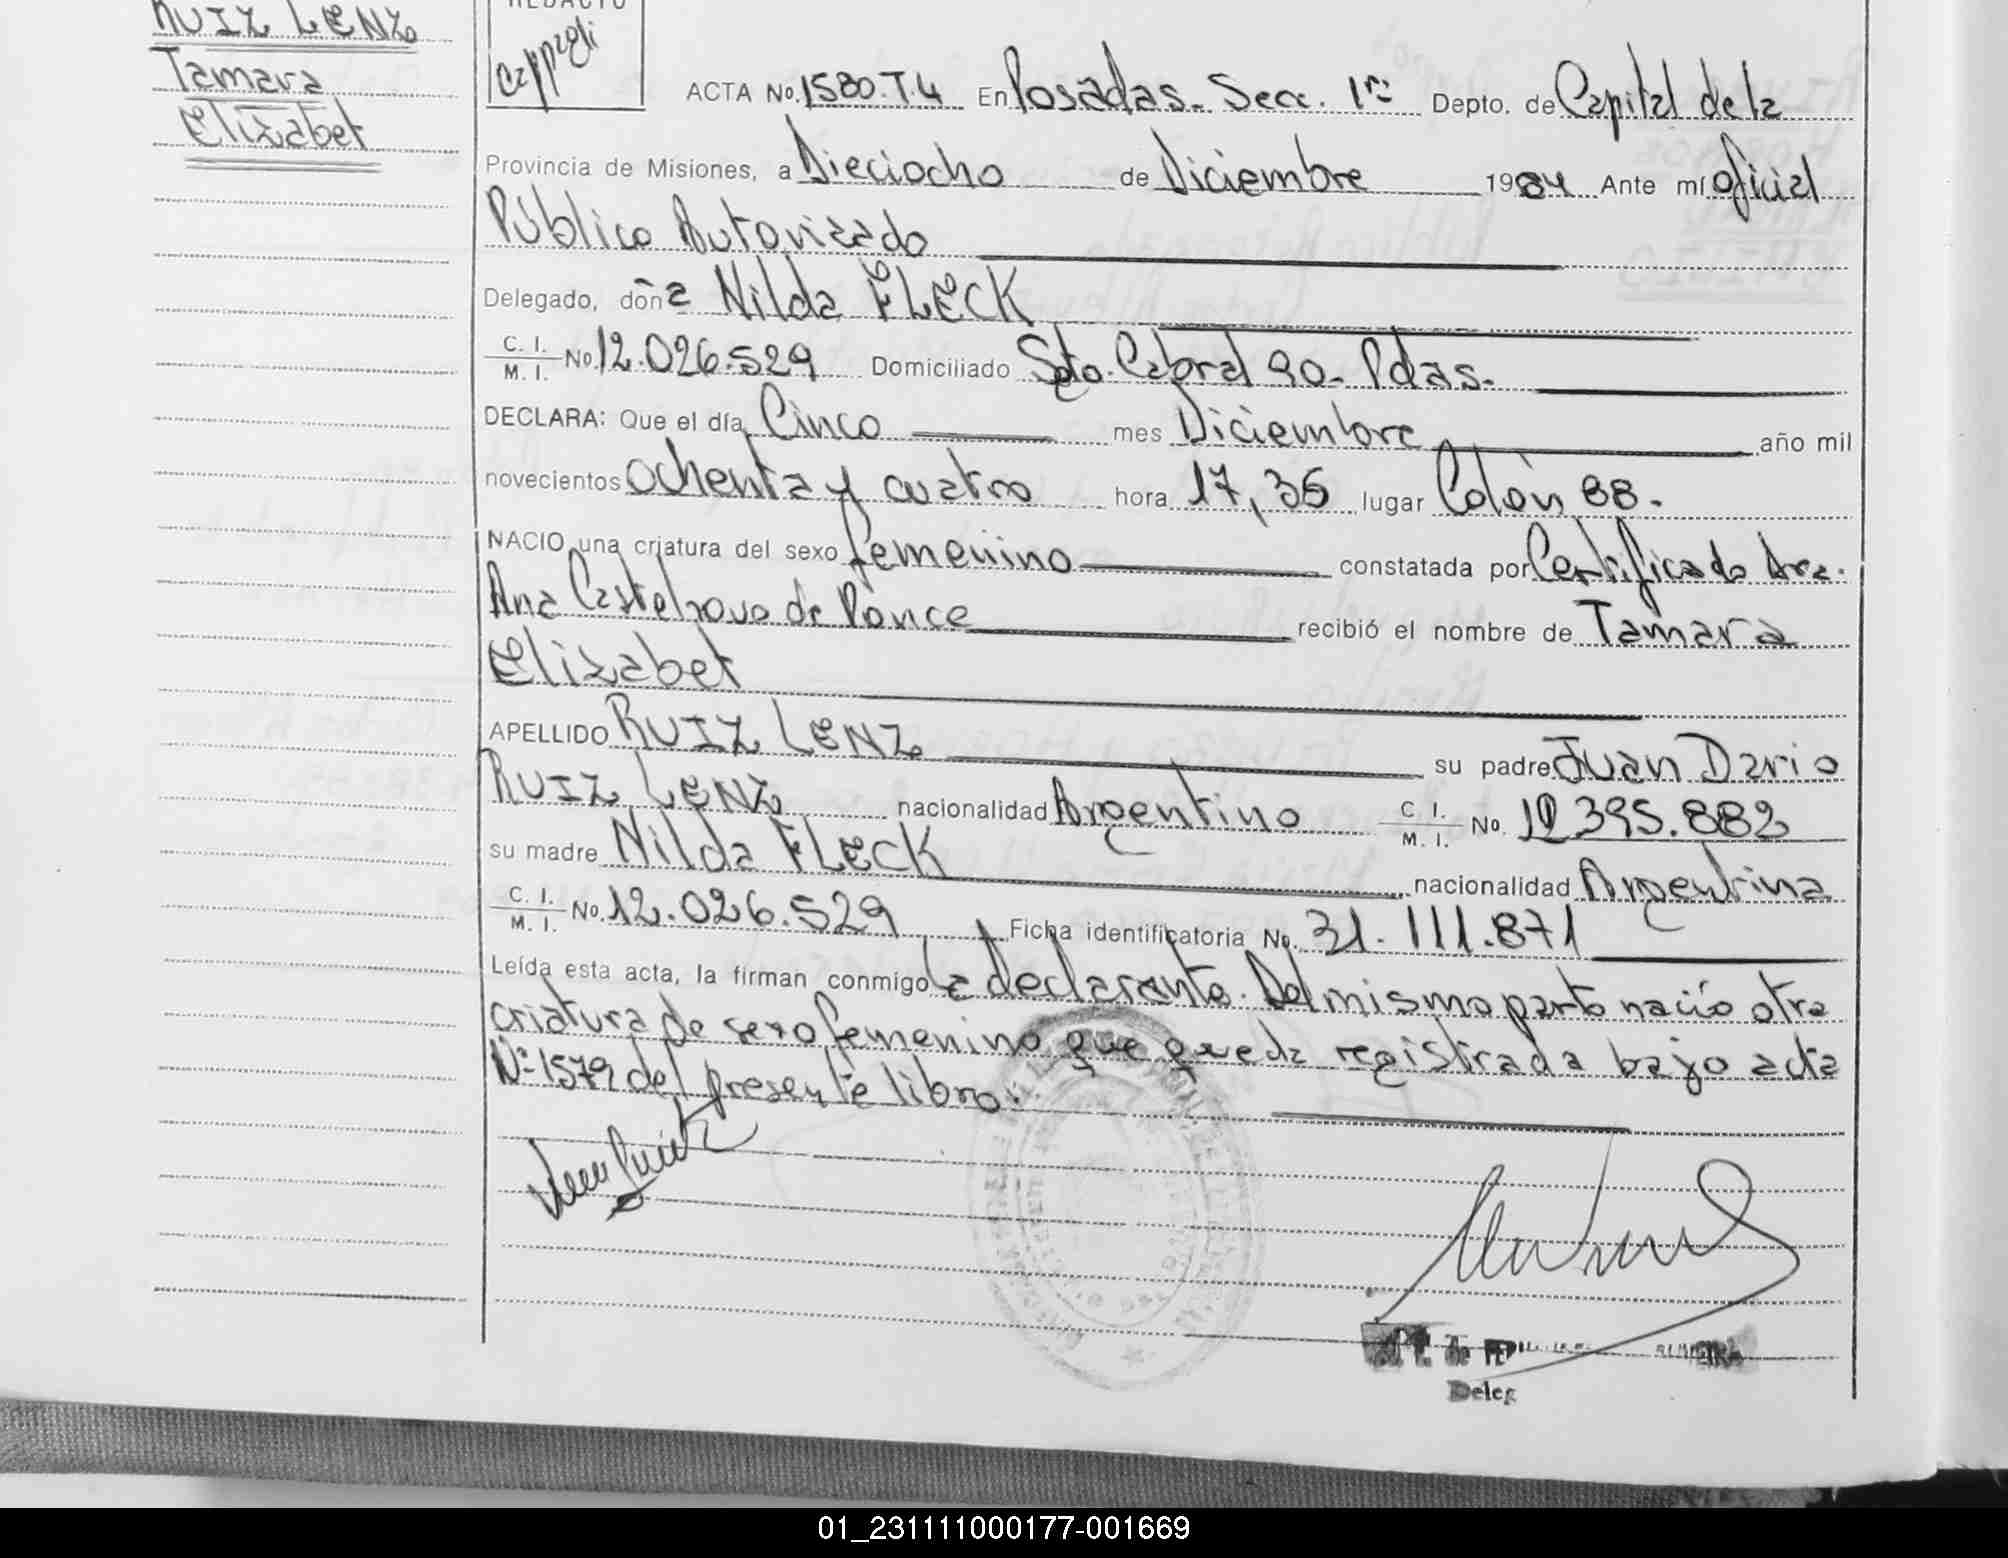 RUIZ LENZ
Tamara
Elizabet
REDACTO
ACTA No. 1580.T.4 En Posadas. Secc. 1ra Depto. de Capital de la
Provincia de Misiones, a Dieciocho de Diciembre 1984 Ante mí Oficial
Público Autorizado
Delegado, doña Nilda FLECK
C. I.
M. I. No. 12.026.529 Domiciliado Sgto. Cabral 90. Pdas.
DECLARA: Que el día Cinco mes Diciembre año mil
novecientos ochenta y cuatro hora 17,35 lugar Colón 88.
NACIO una criatura del sexo femenino constatada por Certificado Dra.
Ana de Ponce recibió el nombre de Tamara
Elizabet
APELLIDO RUIZ LENZ su padre Juan Dario
RUIZ LENZ nacionalidad Argentino C. I. M. I. No. 395.882
su madre Nilda FLECK nacionalidad Argentina
C. I.
M. I. No. 12.026.529 Ficha identificatoria No. 31.111.871
Leída esta acta, la firman conmigo la declarante. Del mismo parto nació otra
criatura de sexo femenino que queda registrada bajo acta
Nº 1579 del presente libro.
Deleg
01_231111000177-001669